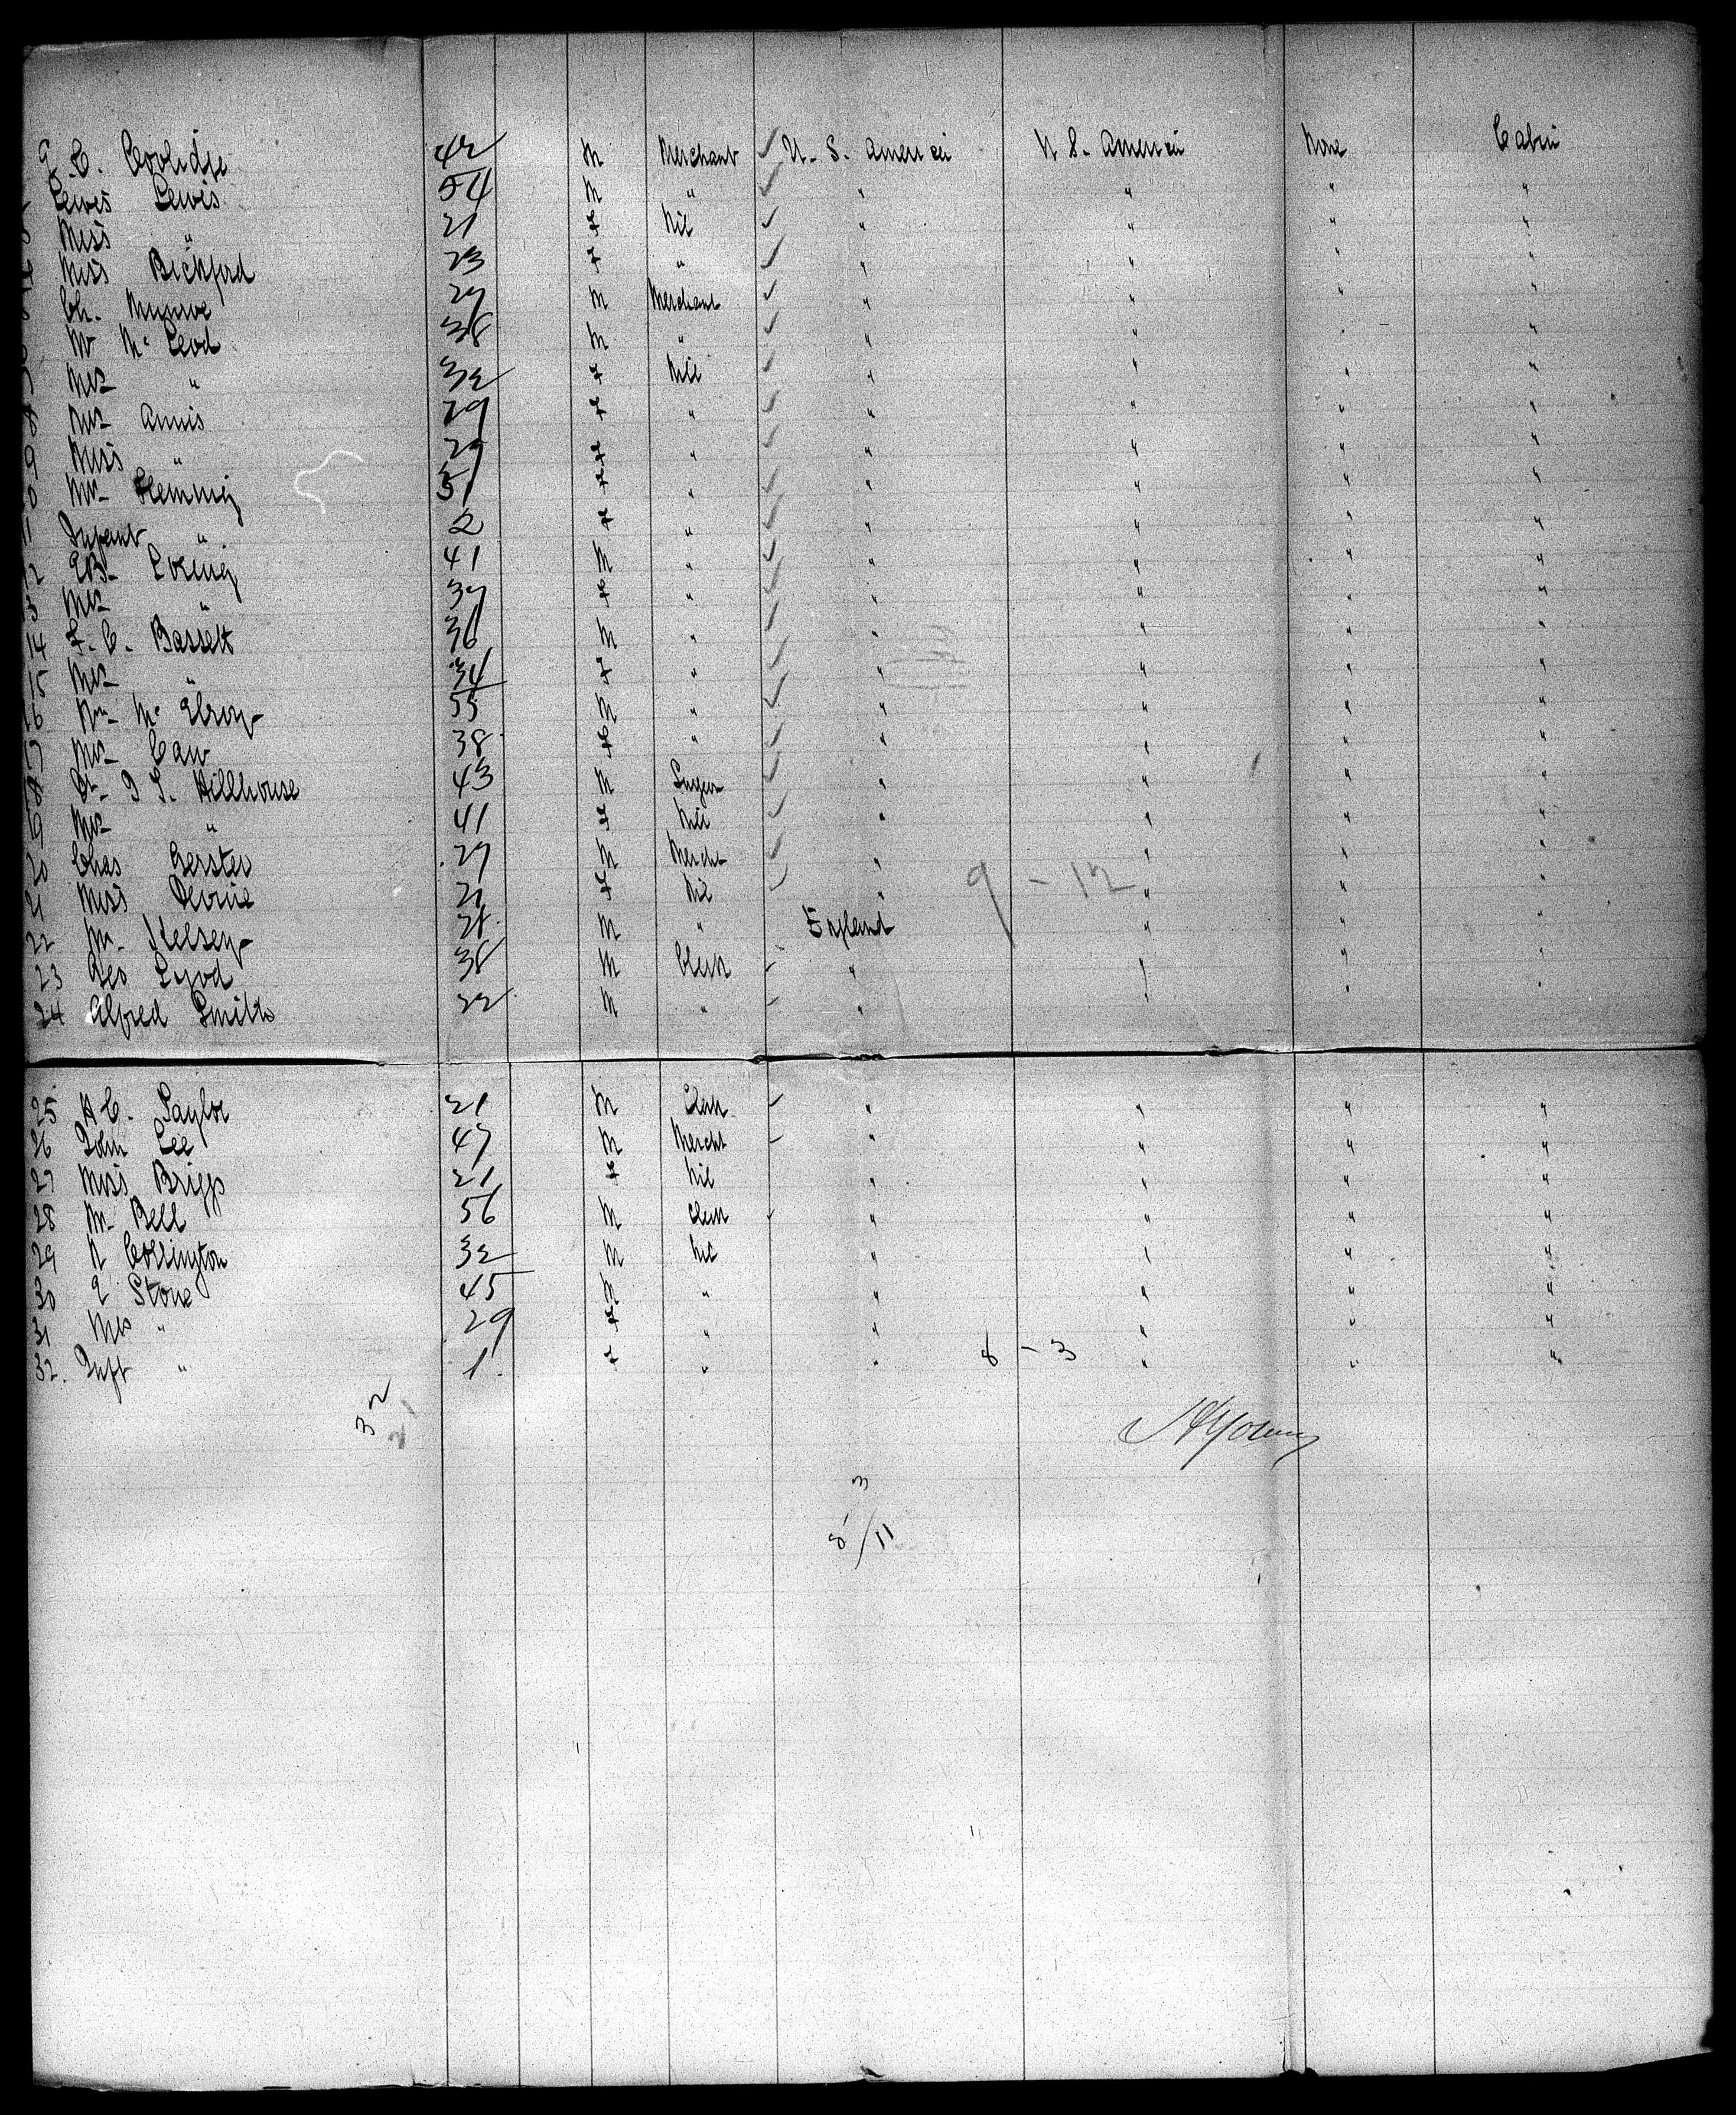 C. Coolidge 42 M Merchant U. S. America U. S. America None Cabin
Lewis Lewis 54 M " " " " "
Miss " 21 F Nil " " " "
Miss Bickford 23 F " " " " "
Ch. Munroe 29 M Merchant " " " "
Mr McLeod 38 M " " " " "
Mrs " 32 F Nil " " " "
8 Mrs Annis 29 F " " " " "
9 Miss " 29 F " " " " "
10 Mrs Fleming 31 F " " " " "
11 Infant " 2 F " " " " "
12 Loring 41 M " " " " "
13 Mrs " 37 F " " " " "
14 F. C. Bassett 36 M " " " " "
15 Mrs " 34 F " " " " "
16 Wm McElroy 55 M " " " " "
17 Mrs 38 F " " " " "
18 Dr. Hillhouse 43 M " " " "
19 Mrs " 41 F Nil " " " "
20 Chas 29 M Mercht " " " "
21 Miss 21 F Nil " " " "
9 - 12
22 Mr. Kelsey 28 M " England " " "
23 Geo 38 M Clerk " " " "
24 Alfred Smith 22 M " " " " "
25 H C. Taylor 21 M Clerk " " " "
26 John Lee 47 M Mercht " " " "
27 Miss Briggs 21 F Nil " " " "
28 Mr Bell 56 M Clerk " " " "
29 Collington 32 M Nil " " " "
30 Stone 45 M " " " " "
31 Mrs " 29 F " " " " "
32. Inft " 1 F " " " " "
8 - 3
32
21
Young
3
8/11